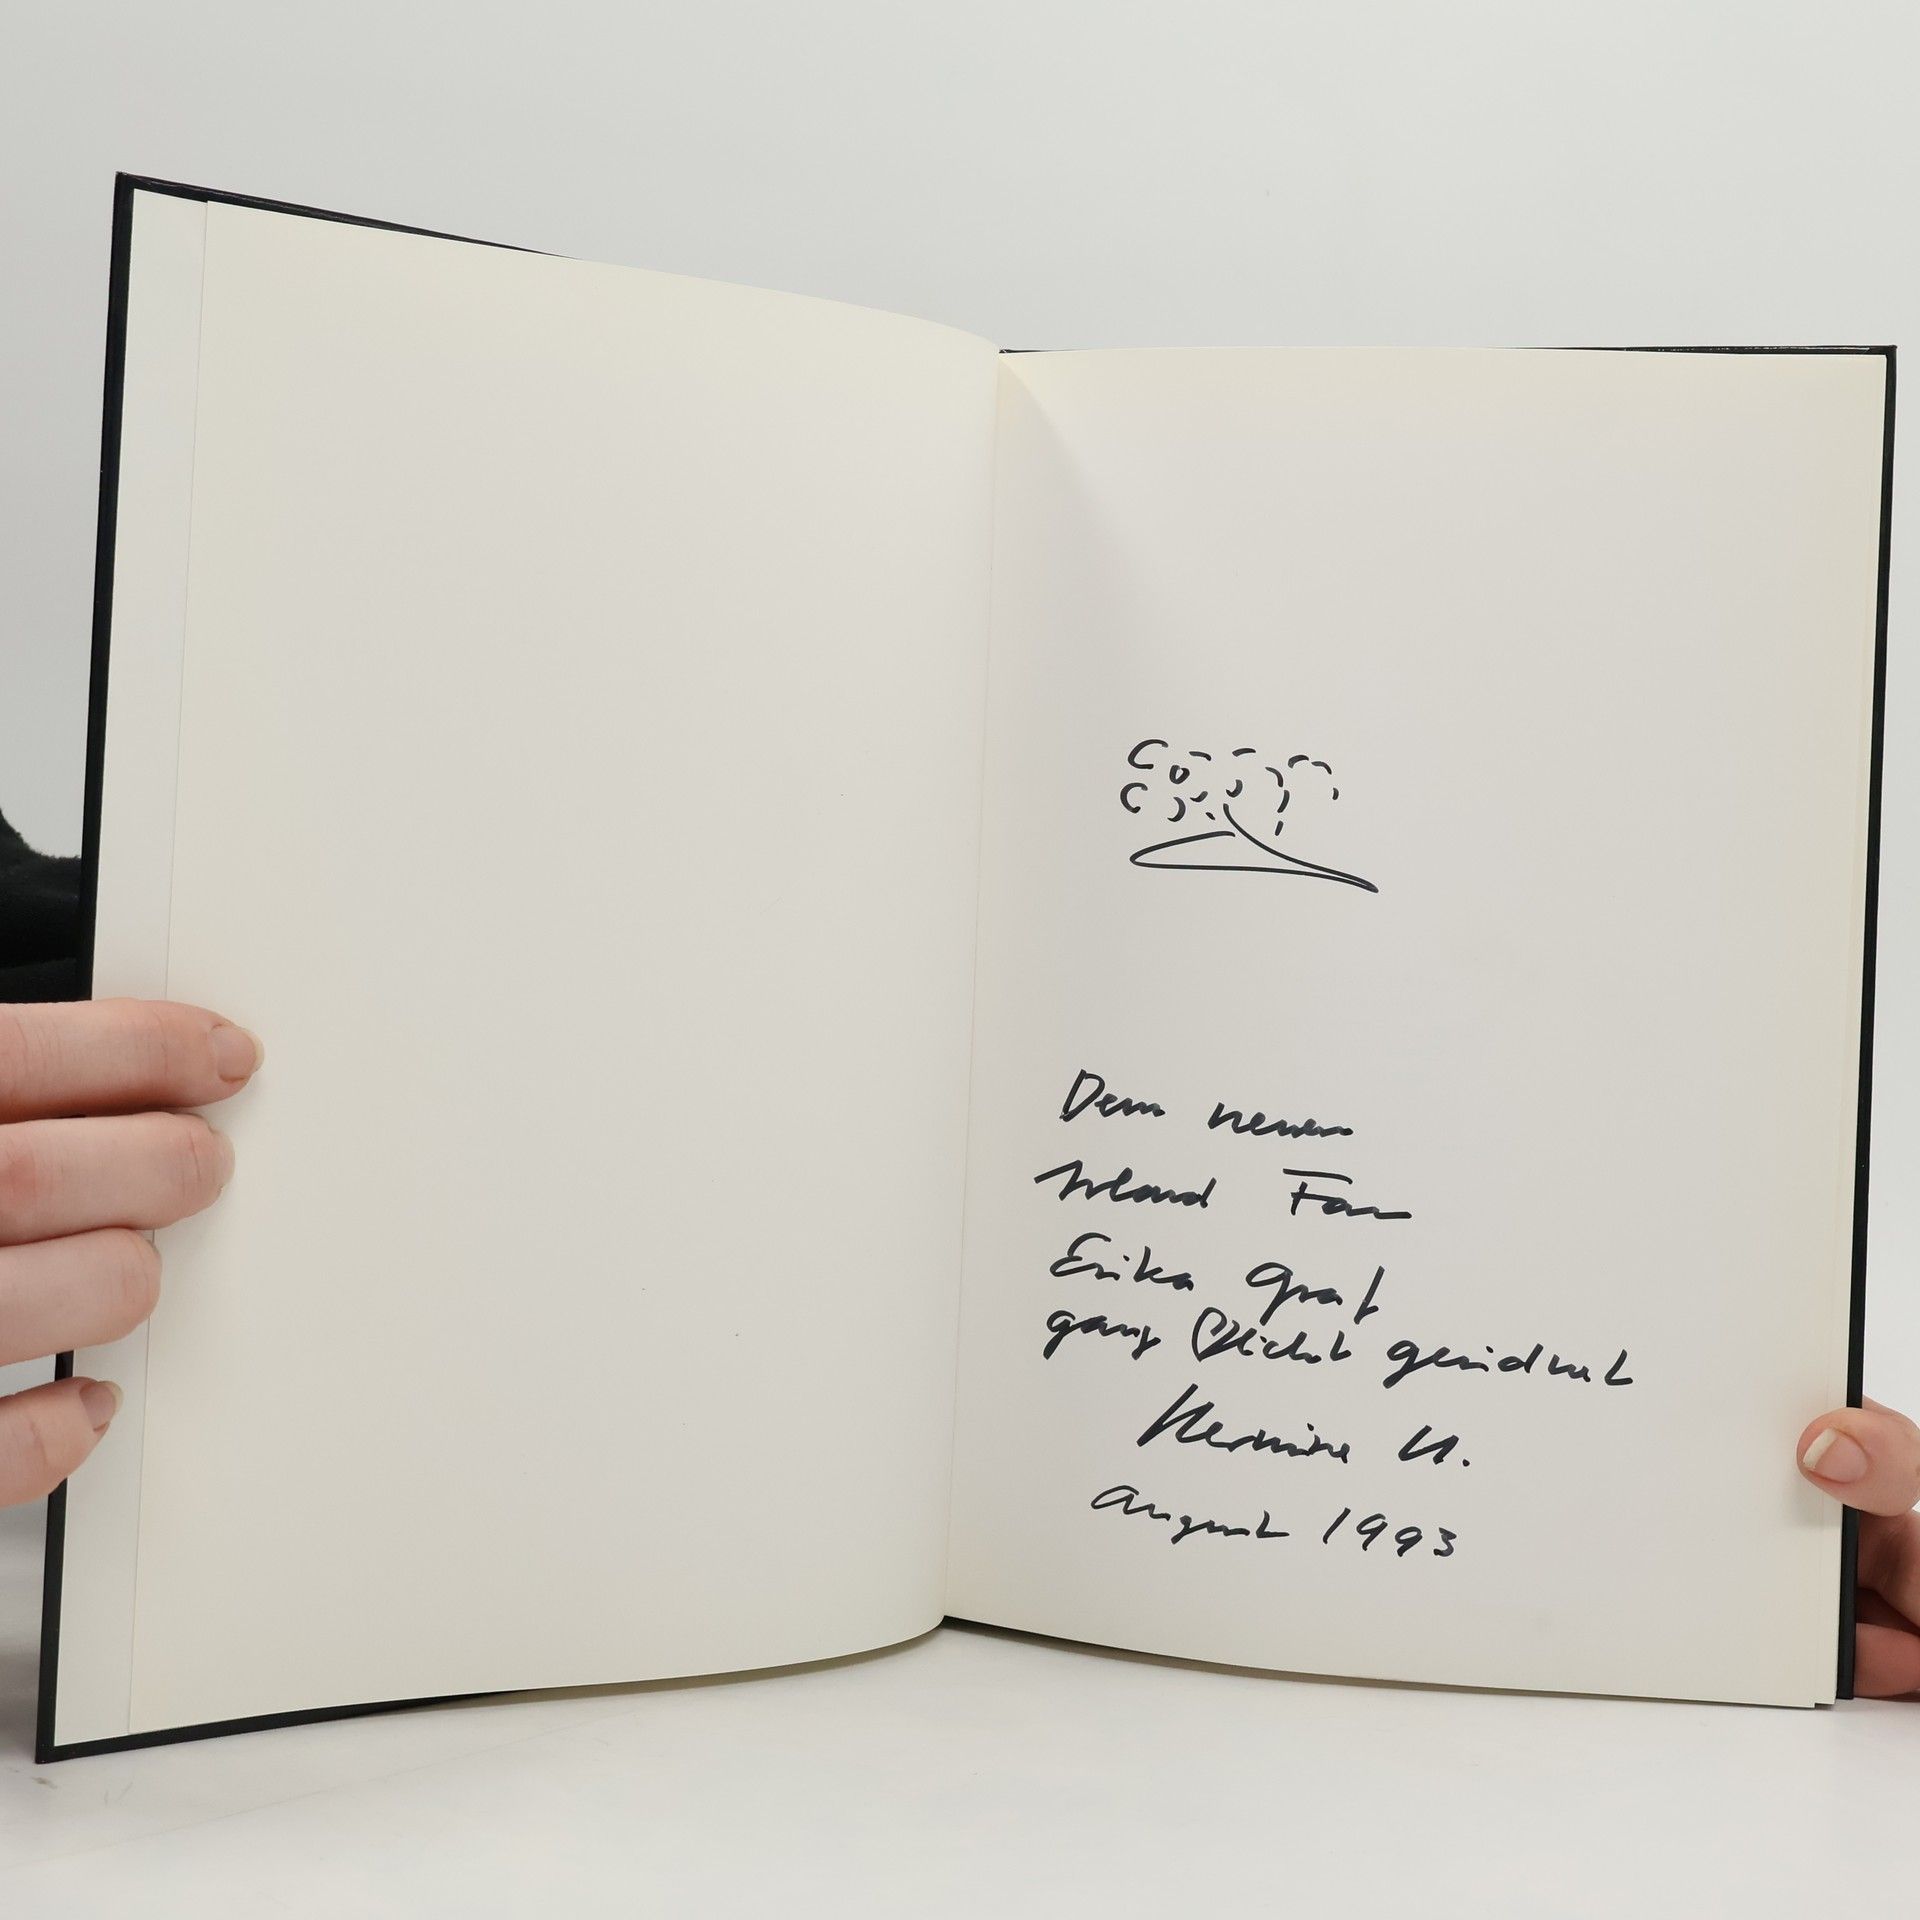 Dem neuen
Irland Fan
Erika Graf
ganz ♡lichst gewidmet
Hermine U.
August 1993